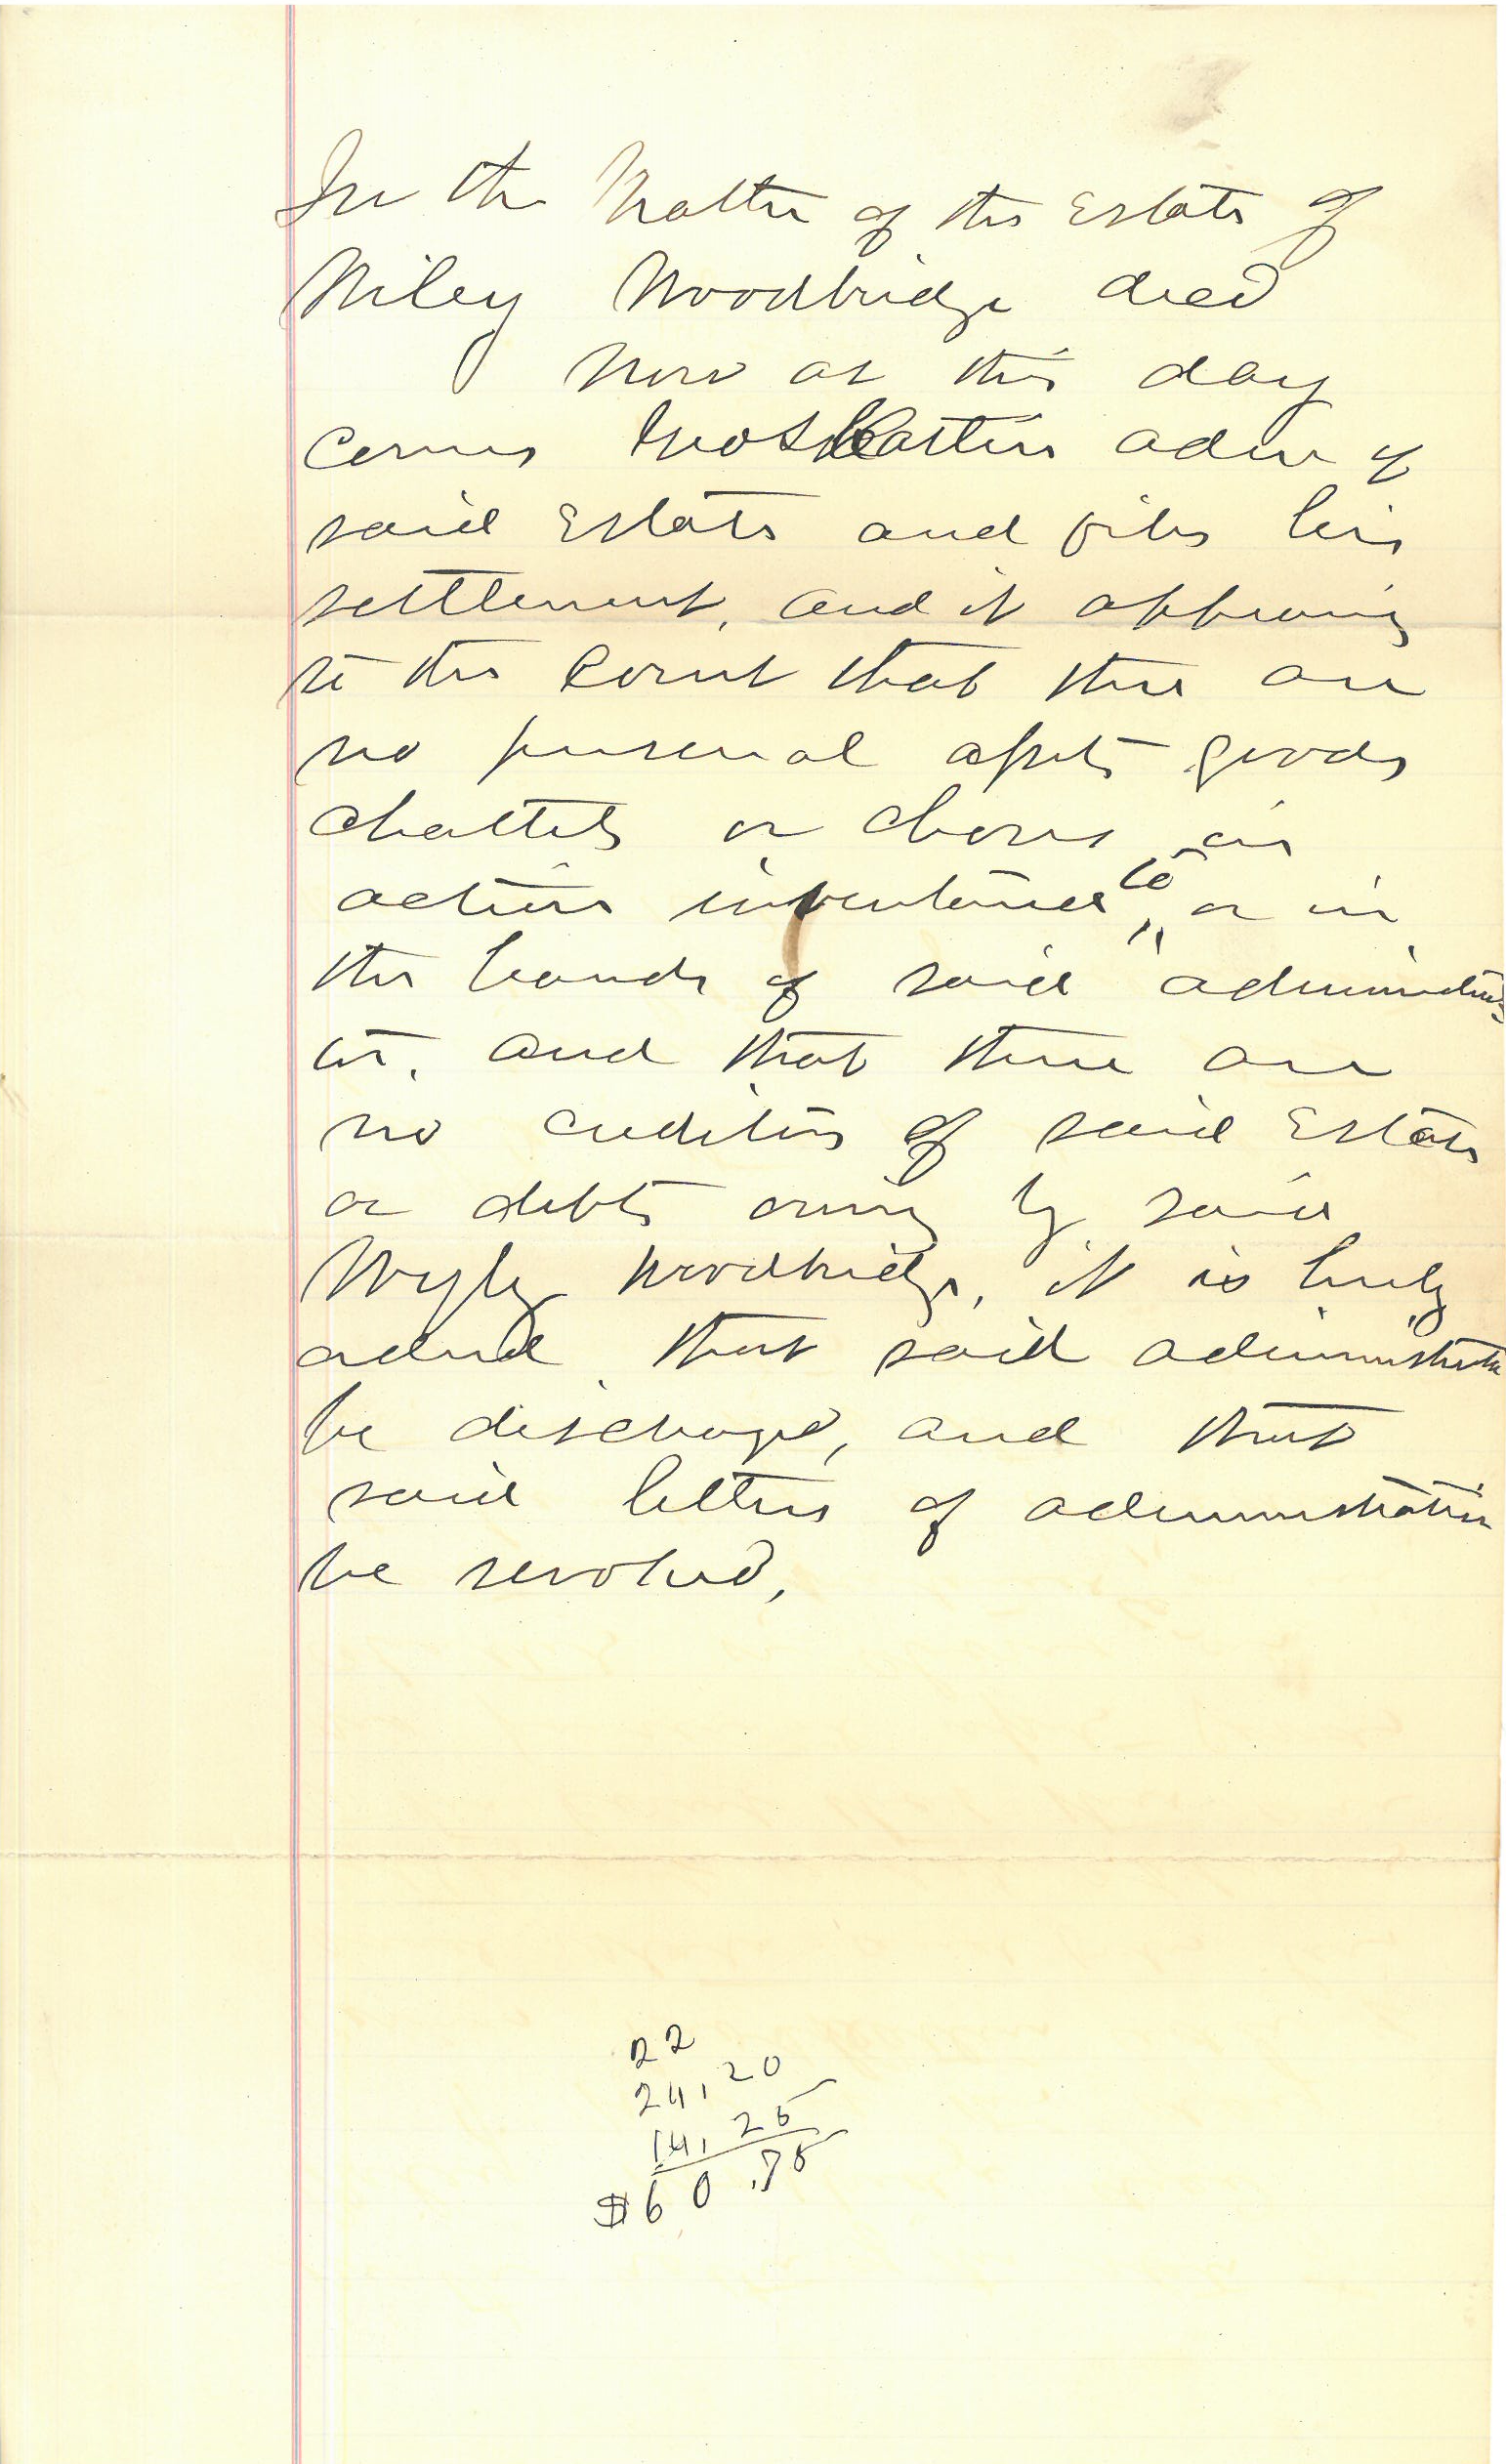 In the Matter of the Estate of
Wiley Woodbridge decd
Now at this day
comes Martin adm of
said Estate and files his
settlement, and it appearing
to the Court that there are
no personal assets goods
chattels or choses in
action inventoried or in
the hands of said administrat
or, and that there are
no creditors of said Estate
or debts owing by said
Wyly Woodbridge, it is hereby
ordered that said administrator
be discharged, and that
said letters of administration
be revoked,
22
24,20
14,25
$60.78